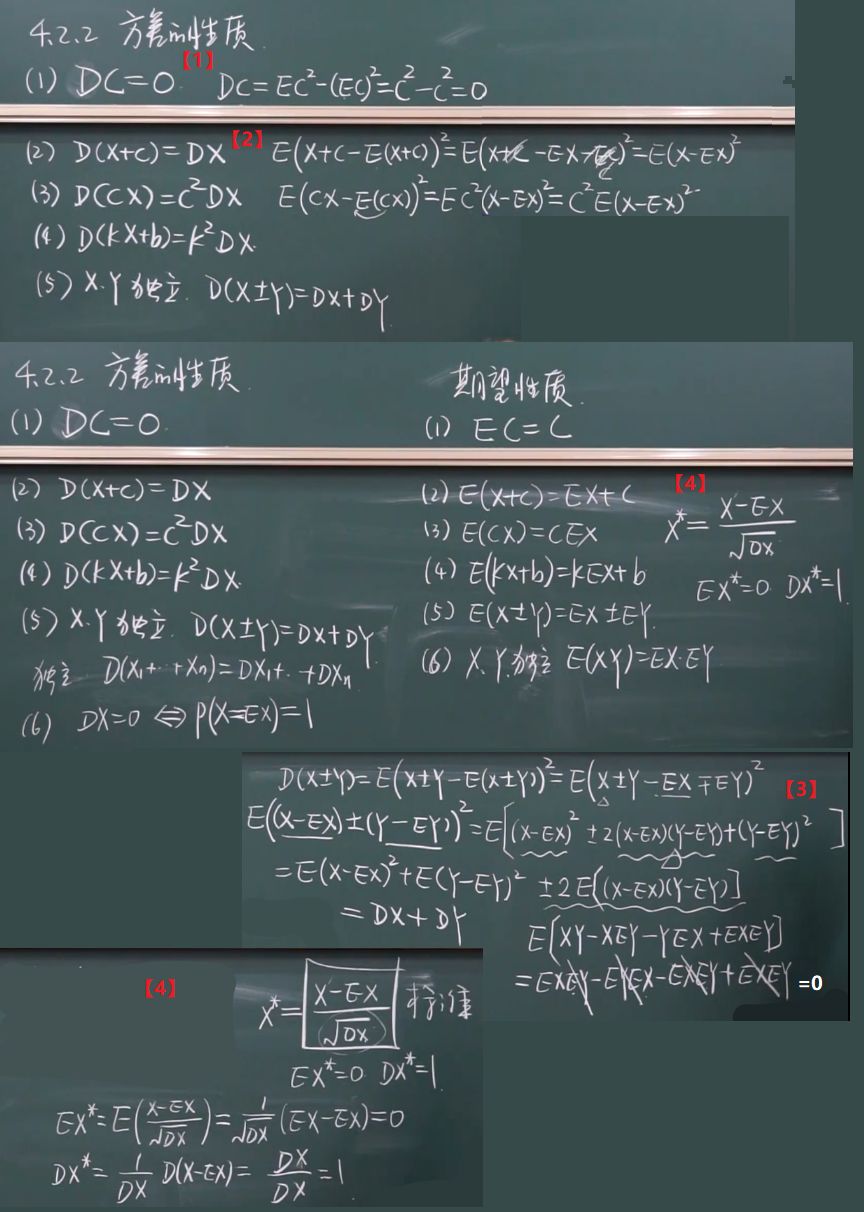 4.2.2 方差的性质
(1) DC=0 【1】 DC=EC²-(EC)²=C²-C²=0
(2) D(X+C)=DX 【2】 E(X+C-E(X+C))²=E(X+C-EX-EC)²=E(X-EX)²
(3) D(CX)=C²DX E(CX-E(CX))²=EC²(X-EX)²=C²E(X-EX)²
(4) D(kX+b)=k²DX
(5) X.Y独立. D(X±Y)=DX+DY
4.2.2 方差的性质
(1) DC=0
(2) D(X+C)=DX
(3) D(CX)=C²DX
(4) D(kX+b)=k²DX
(5) X.Y独立. D(X±Y)=DX+DY
独立 D(X₁+…+Xₙ)=DX₁+…+DXₙ
(6) DX=0 ⇔ P(X=EX)=1
期望性质
(1) EC=C
(2) E(X+C)=EX+C
(3) E(CX)=CEX
(4) E(kX+b)=kEX+b
(5) E(X±Y)=EX±EY
(6) X.Y.独立 E(XY)=EX·EY
【4】
X*=(X-EX)/√DX
EX*=0 DX*=1
D(X±Y)=E(X±Y-E(X±Y))²=E(X±Y-EX∓EY)² 【3】
E((X-EX)±(Y-EY))²=E[(X-EX)²±2(X-EX)(Y-EY)+(Y-EY)²]
=E(X-EX)²+E(Y-EY)²±2E[(X-EX)(Y-EY)]
=DX+DY
E[XY-XEY-YEX+EXEY]
=EXEY-EYEX-EXEY+EXEY =0
【4】
X*=(X-EX)/√DX 标准
EX*=0 DX*=1
EX*=E((X-EX)/√DX)=1/√DX (EX-EX)=0
DX*=1/DX D(X-EX)=DX/DX=1